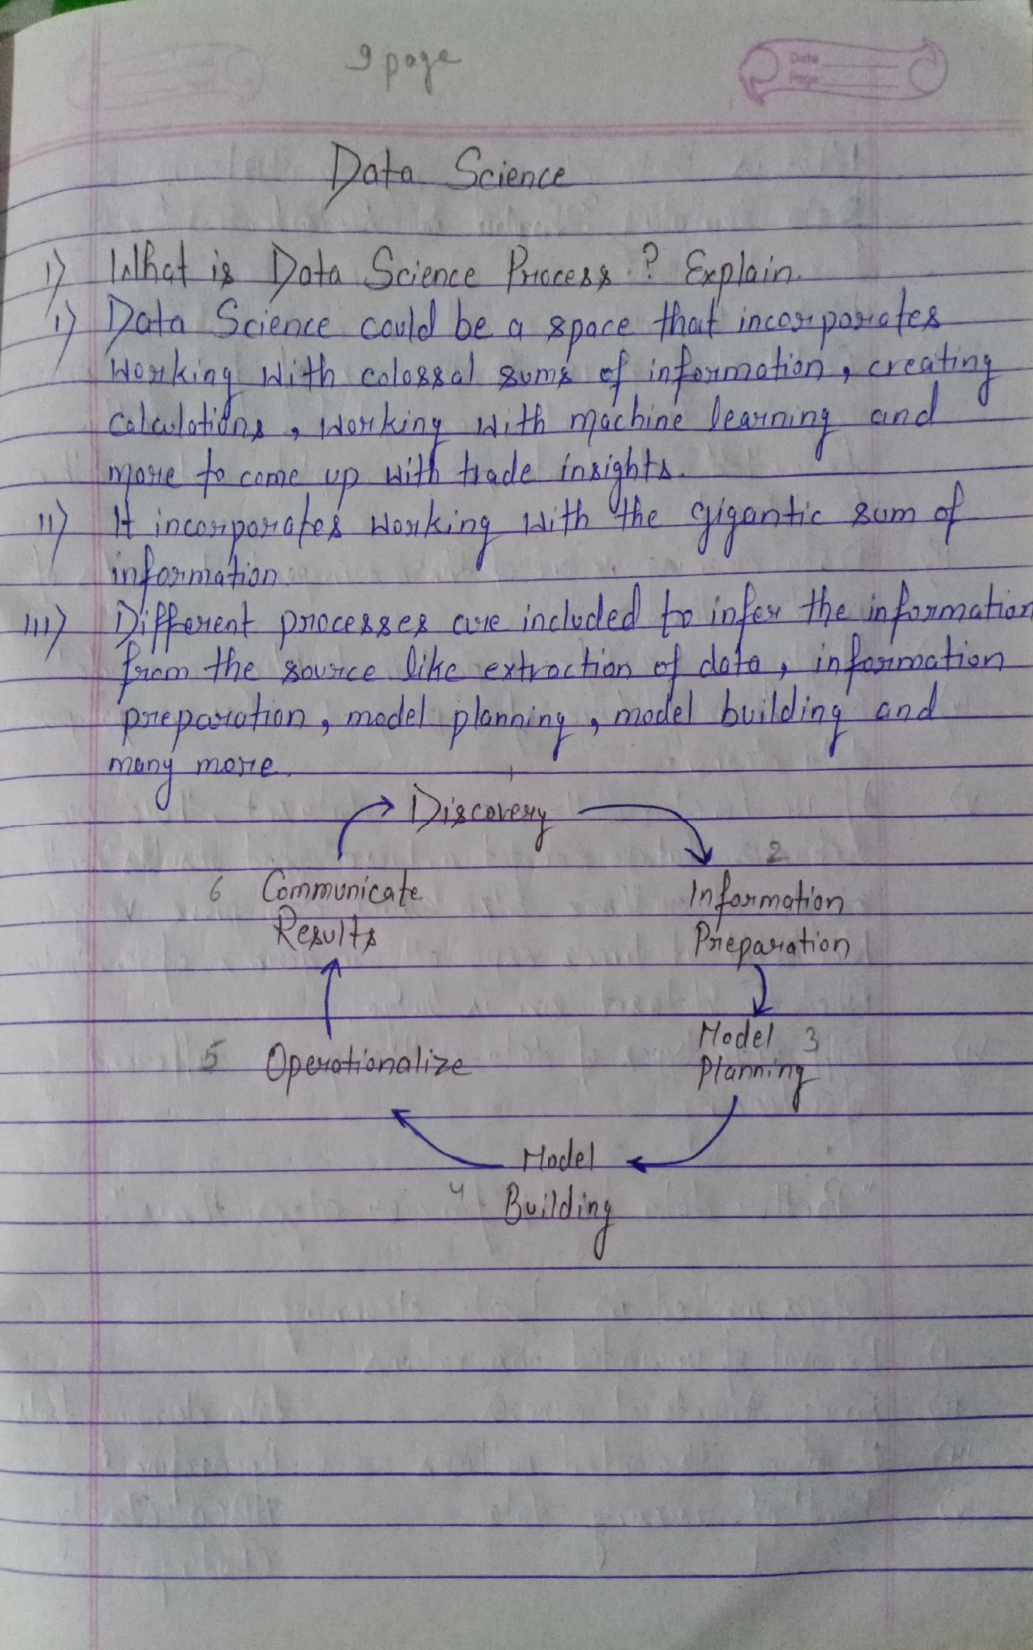 9 page
Date
Page
Data Science
1) What is Data Science Process ? Explain.
i) Data Science could be a space that incorporates
working with colossal sums of information, creating
calculations, working with machine learning and
more to come up with trade insights.
ii) It incorporates working with the gigantic sum of
information
iii) Different processes are included to infer the information
from the source like extraction of data, information
preparation, model planning, model building and
many more.
1
Discovery
2
6 Communicate
Results
Information
Preparation
Model 3
Planning
5 Operationalize
Model
4 Building